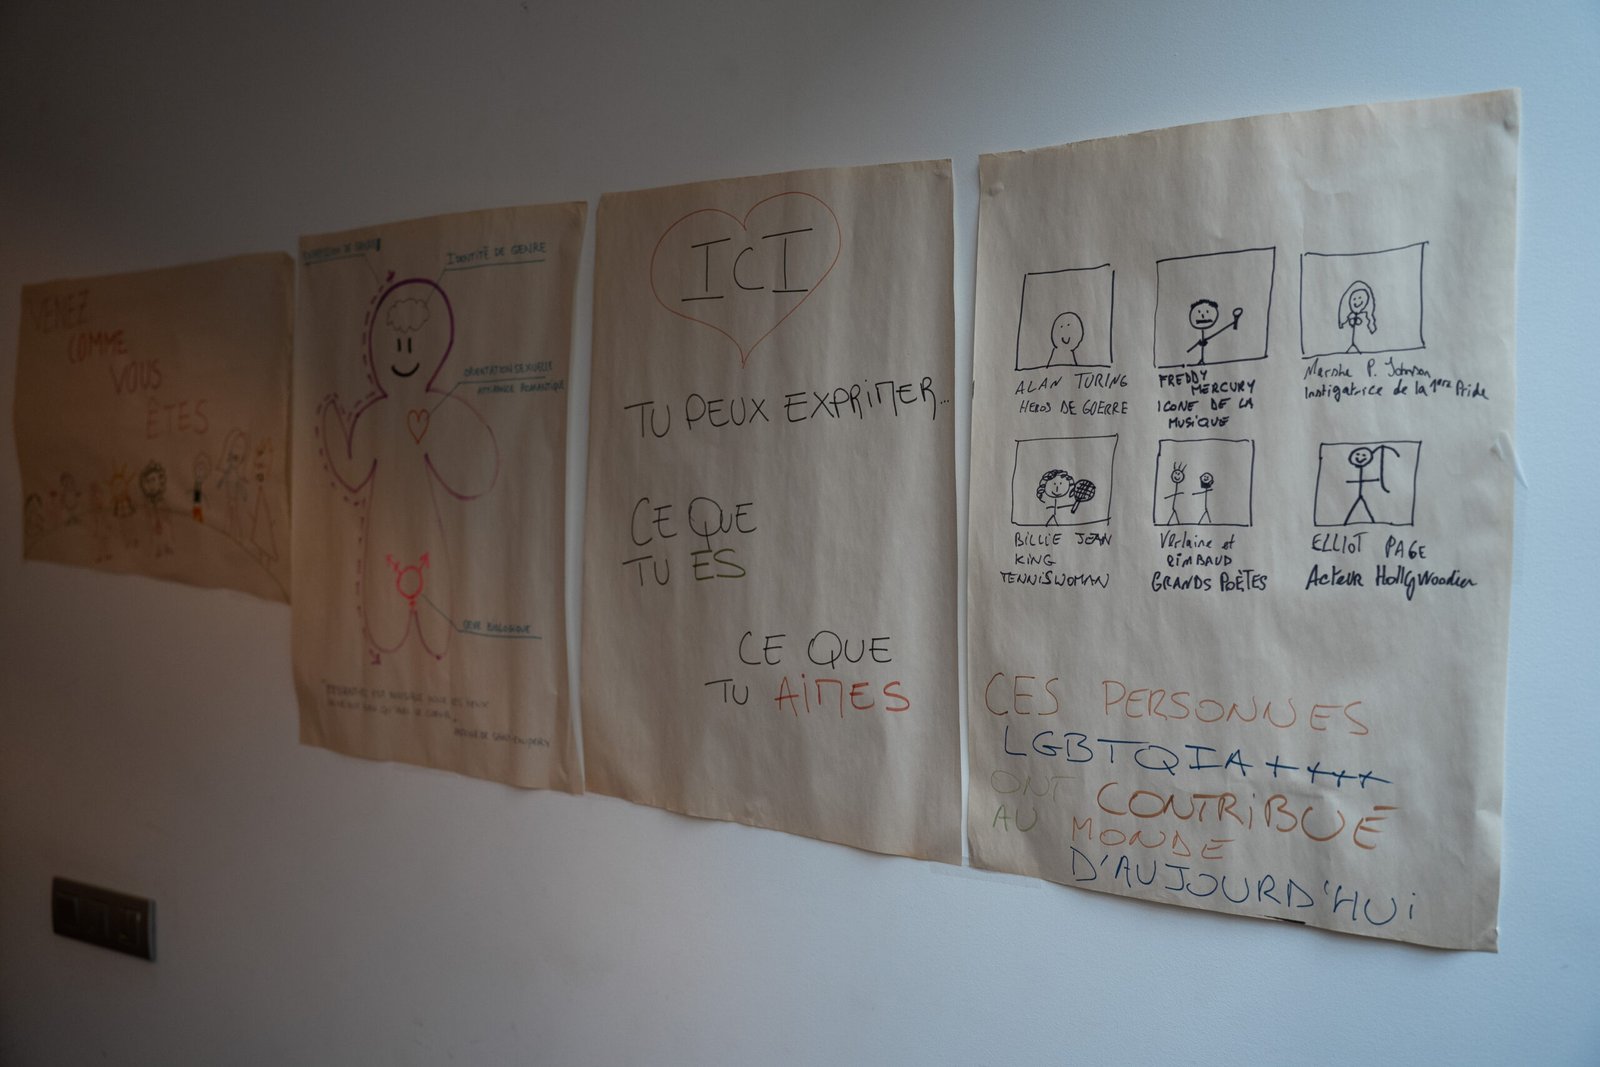 VENEZ
COMME
VOUS
ÊTES
EXPRESSION DE GENRE
IDENTITÉ DE GENRE
ORIENTATION SEXUELLE
ATTIRANCE ROMANTIQUE
SEXE BIOLOGIQUE
ICI
TU PEUX EXPRIMER...
CE QUE
TU ES
CE QUE
TU AIMES
ALAN TURING
HEROS DE GUERRE
FREDDY
MERCURY
ICONE DE LA
MUSIQUE
Marsha P. Johnson
Instigatrice de la 1ère Pride
BILLIE JEAN
KING
TENNISWOMAN
Verlaine et
RIMBAUD
GRANDS POÈTES
ELLIOT PAGE
Acteur Hollywoodien
CES PERSONNES
LGBTQIA+++++
ONT CONTRIBUÉ
AU MONDE
D'AUJOURD'HUI